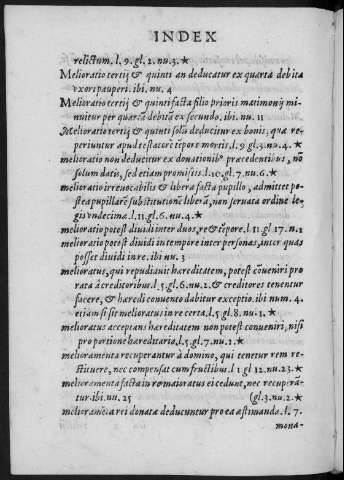 INDEX
relictum. l. 9. gl. 2. nu. 3. ★
Melioratio tertij & quinti an deducatur ex quarta debita
vxori pauperi. ibi. nu. 4
Melioratio tertij & quinti facta filio prioris matimonij mi-
nuitur per quartã debitã ex secundo. ibi. nu. 11
Melioratio tertij & quinti solũ deducitur ex bonis, quæ re-
periuntur apud testatorẽ tẽpore mortis. l. 9 gl. 3. nu. 4. ★
melioratio non deducitur ex donationibꝰ præcedentibus, nõ
solum datis, sed etiam promissis. l. 10. gl. 7. nu. 6. ★
melioratio irreuocabilis & libera facta pupillo, admittet po-
stea pupillarẽ substitutionẽ liberã, non seruata ordine le-
gis vndecima. l. 11. gl. 6. nu. 4. ★
melioratio potest diuidi inter duos, re & tẽpore. l. 11 gl. 17. n. 2
melioratio potest diuidi in tempore inter personas, inter quas
posset diuidi in re. ibi nu. 3
melioratus, qui repudiauit hæreditatem, potest cõueniri pro
rata à creditoribus. l. 5. gl. 6. nu. 2. & creditores tenentur
facere, & hæredi conuento dabitur exceptio. ibi num. 4.
etiam si sit melioratus in re certa. l. 5 gl. 8. nu. 3. ★
melioratus acceptans hæreditatem non potest conueniri, nisi
pro portione hæreditaria. l. 5. gl. 7. nu. 2. ★
melioramenta recuperantur à domino, qui tenetur rem re-
stituere, nec compensat cum fructibus. l 1 gl 12. nu. 23. ★
melioramenta facta in re maioratus ei cedunt, nec recupera-
tur. ibi. nu. 25 (gl. 3. nu. 2. ★
melioramẽta rei donatæ deducuntur pro ea æstimanda. l. 7.
mona-